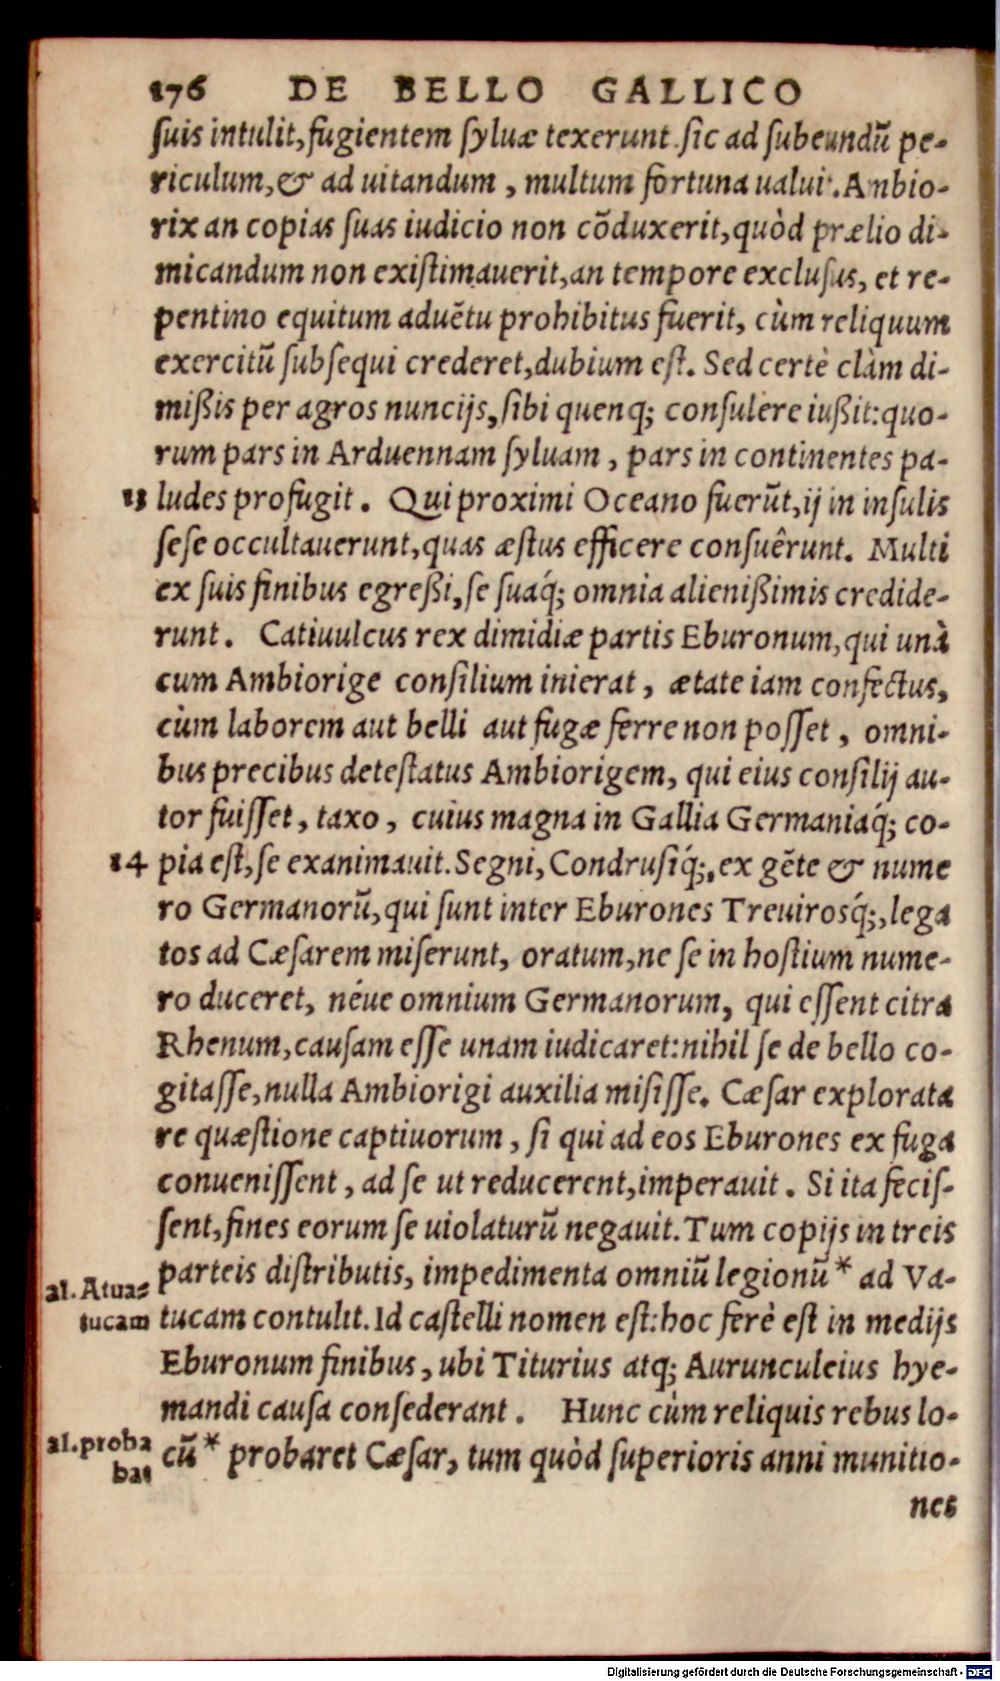 176 DE BELLO GALLICO
ſuis intulit, fugientem ſyluæ texerunt. ſic ad ſubeundũ pe-
riculum, & ad uitandum, multum fortuna ualuit. Ambio-
rix an copias ſuas iudicio non cõduxerit, quòd prælio di-
micandum non exiſtimauerit, an tempore excluſus, et re-
pentino equitum aduẽtu prohibitus fuerit, cùm reliquum
exercitũ ſubſequi crederet, dubium eſt. Sed certè clàm di-
mißis per agros nuncijs, ſibi quenq; conſulere iußit: quo-
rum pars in Arduennam ſyluam, pars in continentes pa-
13 ludes profugit. Qui proximi Oceano fuerũt, ij in inſulis
ſeſe occultauerunt, quas æſtus efficere conſuêrunt. Multi
ex ſuis finibus egreßi, ſe ſuaq́; omnia alienißimis credide-
runt. Catiuulcus rex dimidiæ partis Eburonum, qui unà
cum Ambiorige conſilium inierat, ætate iam confectus,
cùm laborem aut belli aut fugæ ferre non poſſet, omni-
bus precibus deteſtatus Ambiorigem, qui eius conſilij au-
tor fuiſſet, taxo, cuius magna in Gallia Germaniaq́; co-
14 pia eſt, ſe exanimauit. Segni, Condruſiq́;, ex gẽte & nume
ro Germanorũ, qui ſunt inter Eburones Treuiroſq́;, lega
tos ad Cæſarem miſerunt, oratum, ne ſe in hoſtium nume-
ro duceret, néue omnium Germanorum, qui eſſent citra
Rhenum, cauſam eſſe unam iudicaret: nihil ſe de bello co-
gitaſſe, nulla Ambiorigi auxilia miſiſſe. Cæſar explorata
re quæſtione captiuorum, ſi qui ad eos Eburones ex fuga
conueniſſent, ad ſe ut reducerent, imperauit. Si ita feciſ-
ſent, fines eorum ſe uiolaturũ negauit. Tum copijs in treis
parteis diſtributis, impedimenta omniũ legionũ * ad Va-
al. Atua=
tucam
tucam contulit. Id caſtelli nomen eſt: hoc ferè eſt in medijs
Eburonum finibus, ubi Titurius atq; Aurunculeius hye-
mandi cauſa conſederant. Hunc cùm reliquis rebus lo-
al. proba
bat
cũ * probaret Cæſar, tum quòd ſuperioris anni munitio-
nes
Digitalisierung gefördert durch die Deutsche Forschungsgemeinschaft - DFG